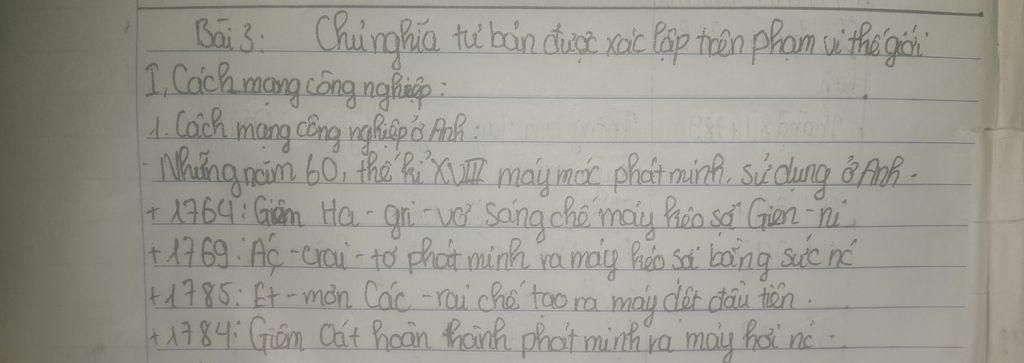 Bài 3: Chủ nghĩa tư bản được xác lập trên phạm vi thế giới
I, Cách mạng công nghiệp:
1. Cách mạng công nghiệp ở Anh:
- Những năm 60, thế kỉ XVIII máy móc phát minh, sử dụng ở Anh.
+ 1764: Giêm Ha-gri-vơ sáng chế máy kéo sợi Gien-ni
+ 1769: Ác-crai-tơ phát minh ra máy kéo sợi bằng sức nc
+ 1785: Ét-mơn Các-rai chế tạo ra máy dệt đầu tiên.
+ 1784: Giêm Oát hoàn thành phát minh ra máy hơi nc.